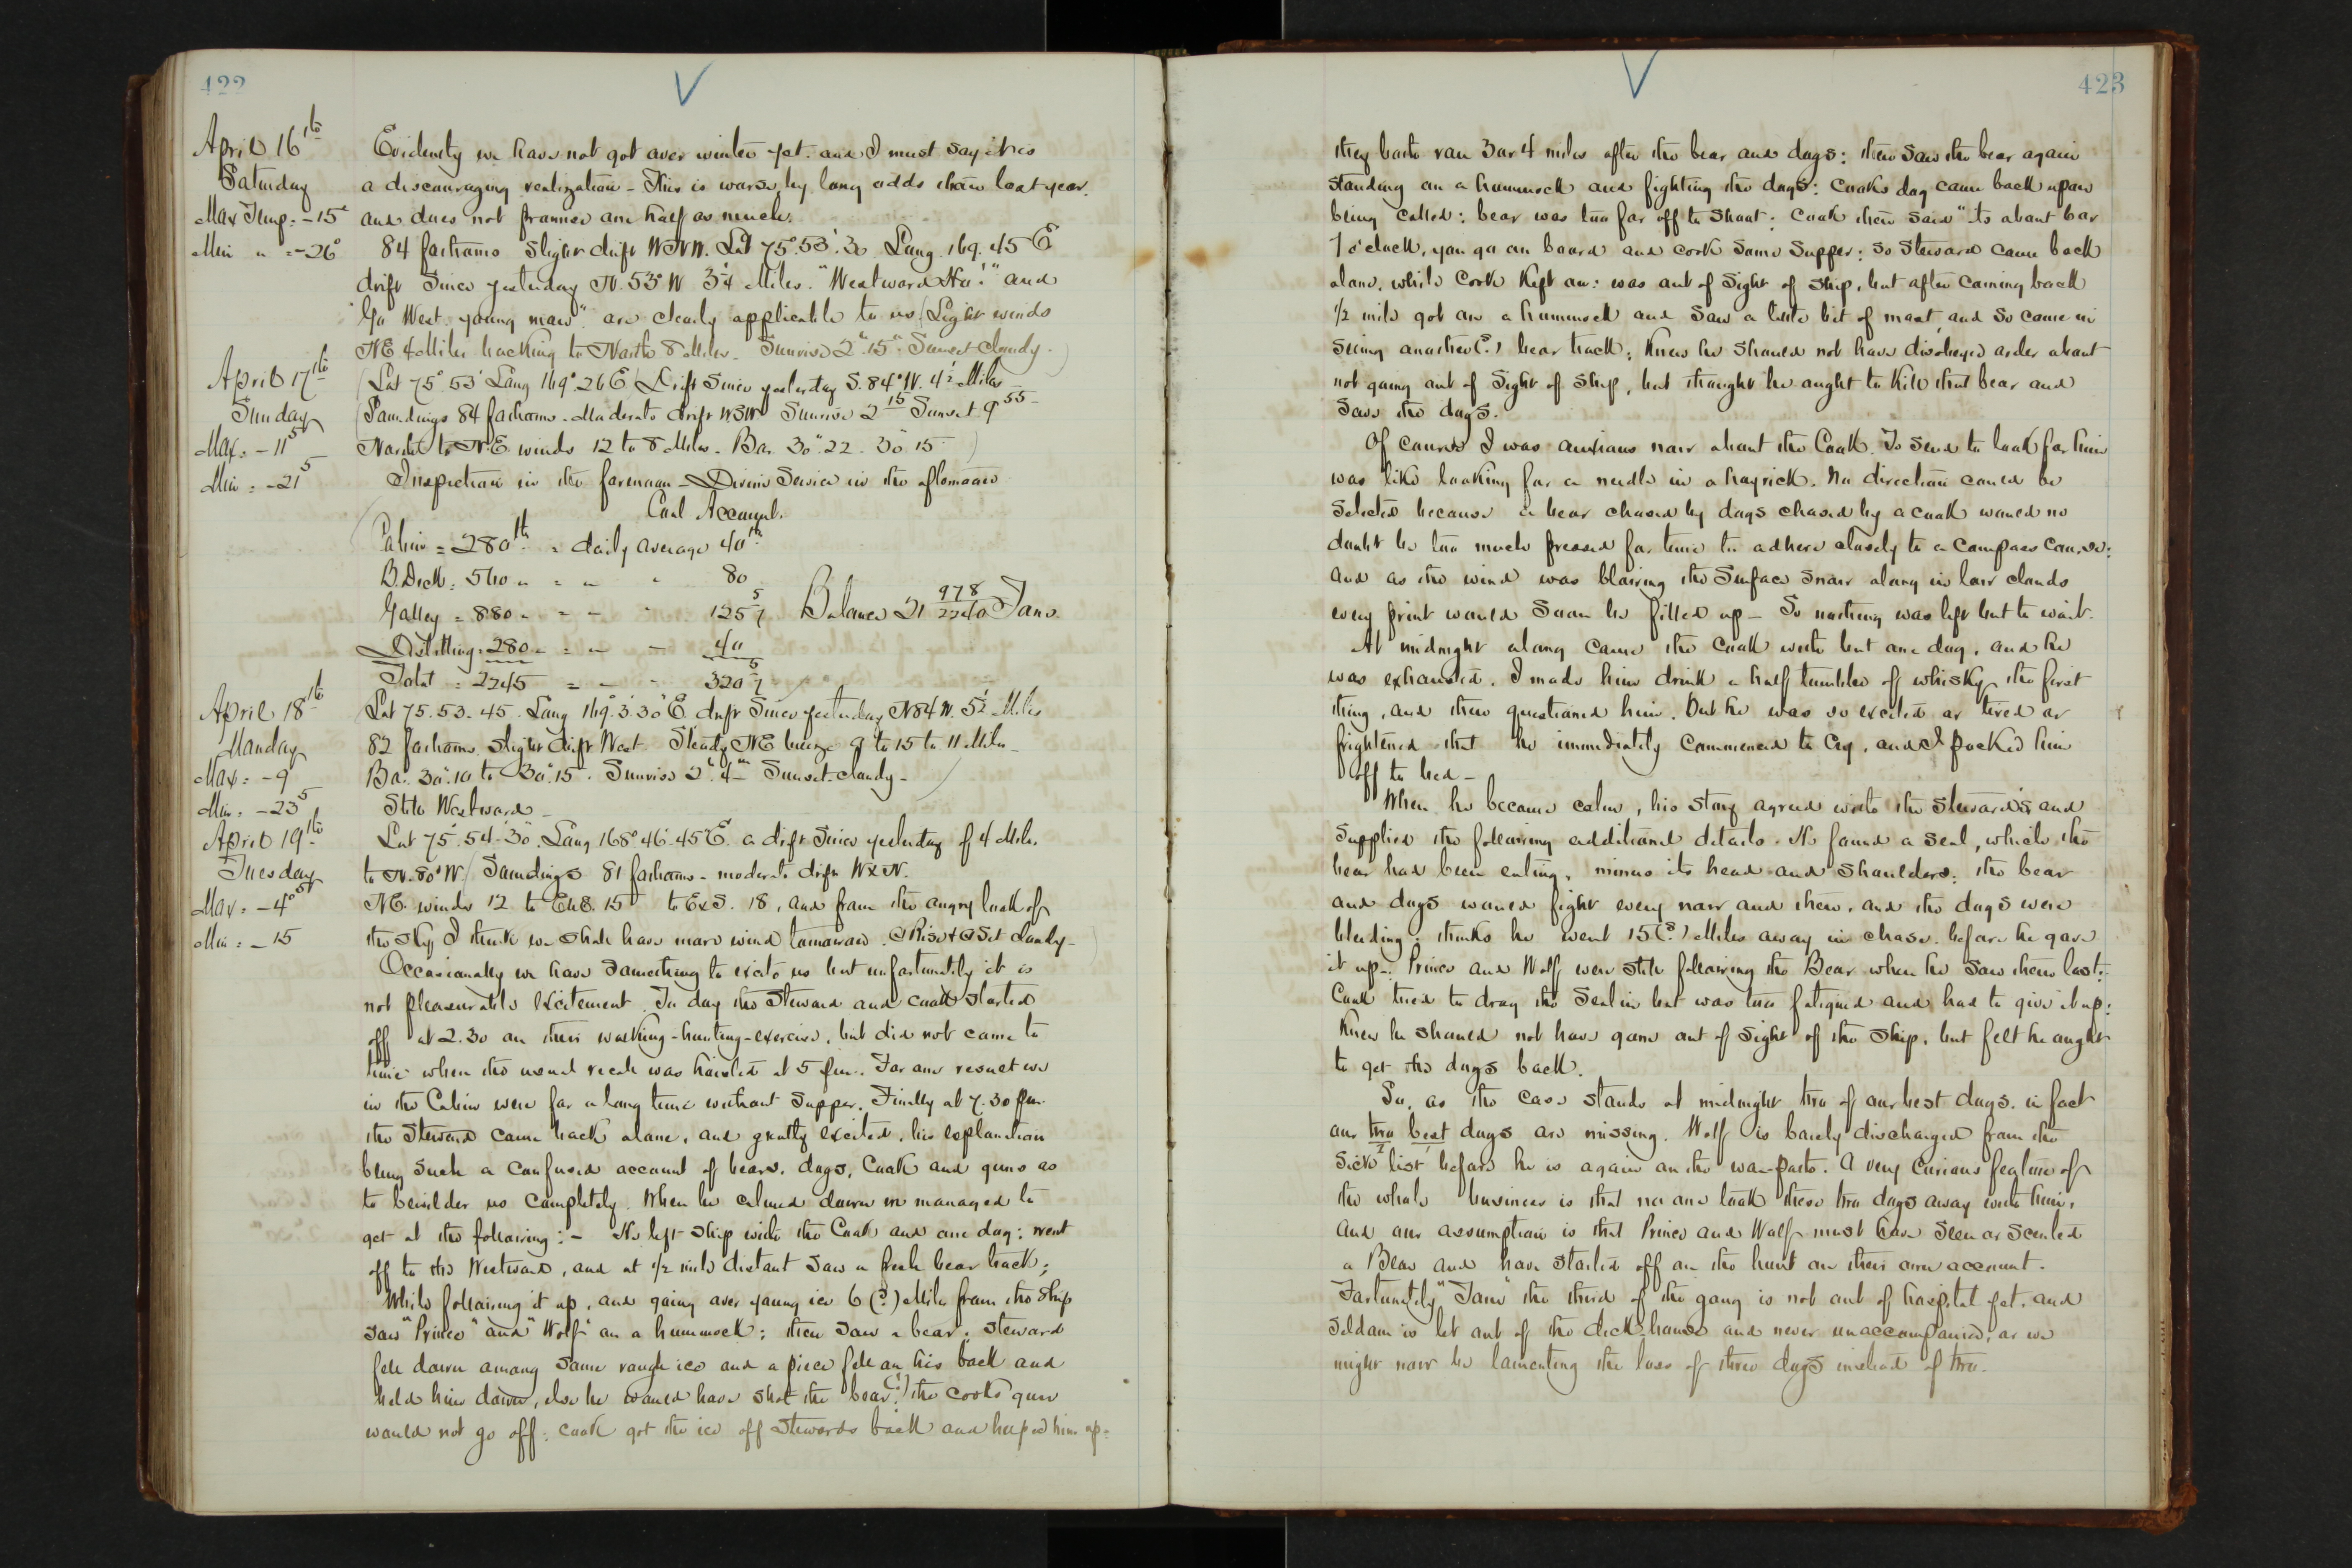 422
April 16th
Saturday
Max Temp = -15°
Min " = -26°
Evidently we have not got over winter yet. and I must say it is
a discouraging realization - This is worse by long odds than last year.
and does not promise one half as much.
84 fathoms Slight drift WNW. Lat 75°.53'.30 Long. 169.45 E
drift Since yesterday N.53°W 3¼ Miles. "Westward Ho!" and
"Go West. young man". are clearly applicable to us (Light winds
NE 4 Miles backing to North 8 Miles - Sunrise 2h.15m Sunset Cloudy - )
April 17th
Sunday
Max = -11°5
Min = -21°5
(Lat 75°.53' Long 169°.26 E (Drift Since yesterday S.84°W. 4½ Miles
(Soundings 84 fathoms - Moderate drift WSW Sunrise 2 15 Sunset 9 55 -
North to N.E. winds 12 to 8 Miles - Bar. 30".22 - 30".15 )
Inspection in the forenoon - Divine Service in the afternoon
Coal Account.
Cabin = 280 lb = daily average 40 lb
B.Deck = 560 " = " " 80
Galley = 880 " = " " 125 5/7 Balance 21 978/2240 Tons.
Distilling = 280 " = " " 40
Total = 2245 = " " 320 5/7
April 18th
Monday
Max = -9
Min = -23°5
(Lat 75.53.45. Long 169°.3.30 E. drift Since yesterday N84 W. 5½ Miles
82 fathoms. slight drift West. Steady NE breeze 9 to 15 to 11 Miles -
Bar. 30".10 to 30".15. Sunrise 2h.4m Sunset cloudy - )
Still Westward -
April 19th
Tuesday
Max = -4°5
Min = -15
Lat 75°.54'.30". Long 168°46'.45" E. a drift Since yesterday of 4 Miles
to N.80°W. (Soundings 81 fathoms - moderate drift WxN.
NE. winds 12 to ENE. 15 to ExS. 18, and from the angry look of
the sky I think we shall have more wind tomorrow. ☉Rise & ☉Set Cloudy - )
Occasionally we have something to excite us but unfortunately it is
not pleasurable excitement. To day the Steward and cook started
off at 2.30 on their walking-hunting-exercise, but did not come to
time when the usual recall was hoisted at 5 p.m. For one result we
in the Cabin were for a long time without Supper. Finally at 7.30 p.m.
the Steward came back alone, and greatly excited, his explanation
being such a confused account of bears, dogs, Cook and guns as
to bewilder us completely. When he calmed down we managed to
get at the following: - He left ship with the Cook and one dog; went
off to the Westward, and at ½ mile distant saw a fresh bear track;
While following it up, and going over young ice 6 (?) Miles from the ship
saw "Prince" and "Wolf" on a hummock; then saw a bear; Steward
fell down among some rough ice and a piece fell on his back and
held him down, else he would have shot the bear (!): the cooks gun
would not go off: cook got the ice off Stewards back and helped him up:
423
they both ran 3 or 4 miles after the bear and dogs: then saw the bear again
standing on a hummock and fighting the dogs: Cooks dog came back upon
being called: bear was too far off to shoot: Cook then said "to about bar
7 o'clock, you go on board and cook some Supper: So Steward came back
alone, while Cook kept on: was out of sight of ship, but after coming back
½ mile got on a hummock and saw a little bit of mast, and so came in
seeing another (?) bear track; knew he should not have disobeyed order about
not going out of sight of ship, but thought he ought to kill that bear and
save the dogs.
Of course I was anxious now about the Cook. To send to look for him
was like looking for a needle in a hayrick. No direction could be
selected because a bear chased by dogs chased by a cook would no
doubt be too much pressed for time to adhere closely to a compass course:
and as the wind was blowing the surface snow along in low clouds
every print would soon be filled up - So nothing was left but to wait.
At midnight along came the cook with but one dog, and he
was exhausted. I made him drink a half tumbler of whisky the first
thing, and then questioned him. But he was so excited or tired or
frightened that he immediately commenced to cry, and I packed him
off to bed -
When he became calm, his story agreed with the Steward's, and
supplied the following additional details. He found a seal, which the
bear had been eating, minus its head and shoulders: the bear
and dogs would fight every now and then, and the dogs were
bleeding: thinks he went 15 (?) Miles away in chase before he gave
it up -. Prince and Wolf were still following the Bear when he saw them last:
Cook tried to drag the seal in but was too fatigued and had to give it up:
Knew he should not have gone out of sight of the ship, but felt he ought
to get the dogs back.
So, as the case stands at midnight two of our best dogs, in fact
our two best dogs are missing. Wolf is barely discharged from the
sick list before he is again on the war-path. A very curious feature of
the whole business is that no one took these two dogs away with him,
and our assumption is that Prince and Wolf must have seen or scented
a Bear and have started off on the hunt on their own account.
Fortunately "Tom" the third of the gang is not out of hospital yet, and
seldom is let out of the deck-house and never unaccompanied; or we
might now be lamenting the loss of three dogs instead of two.